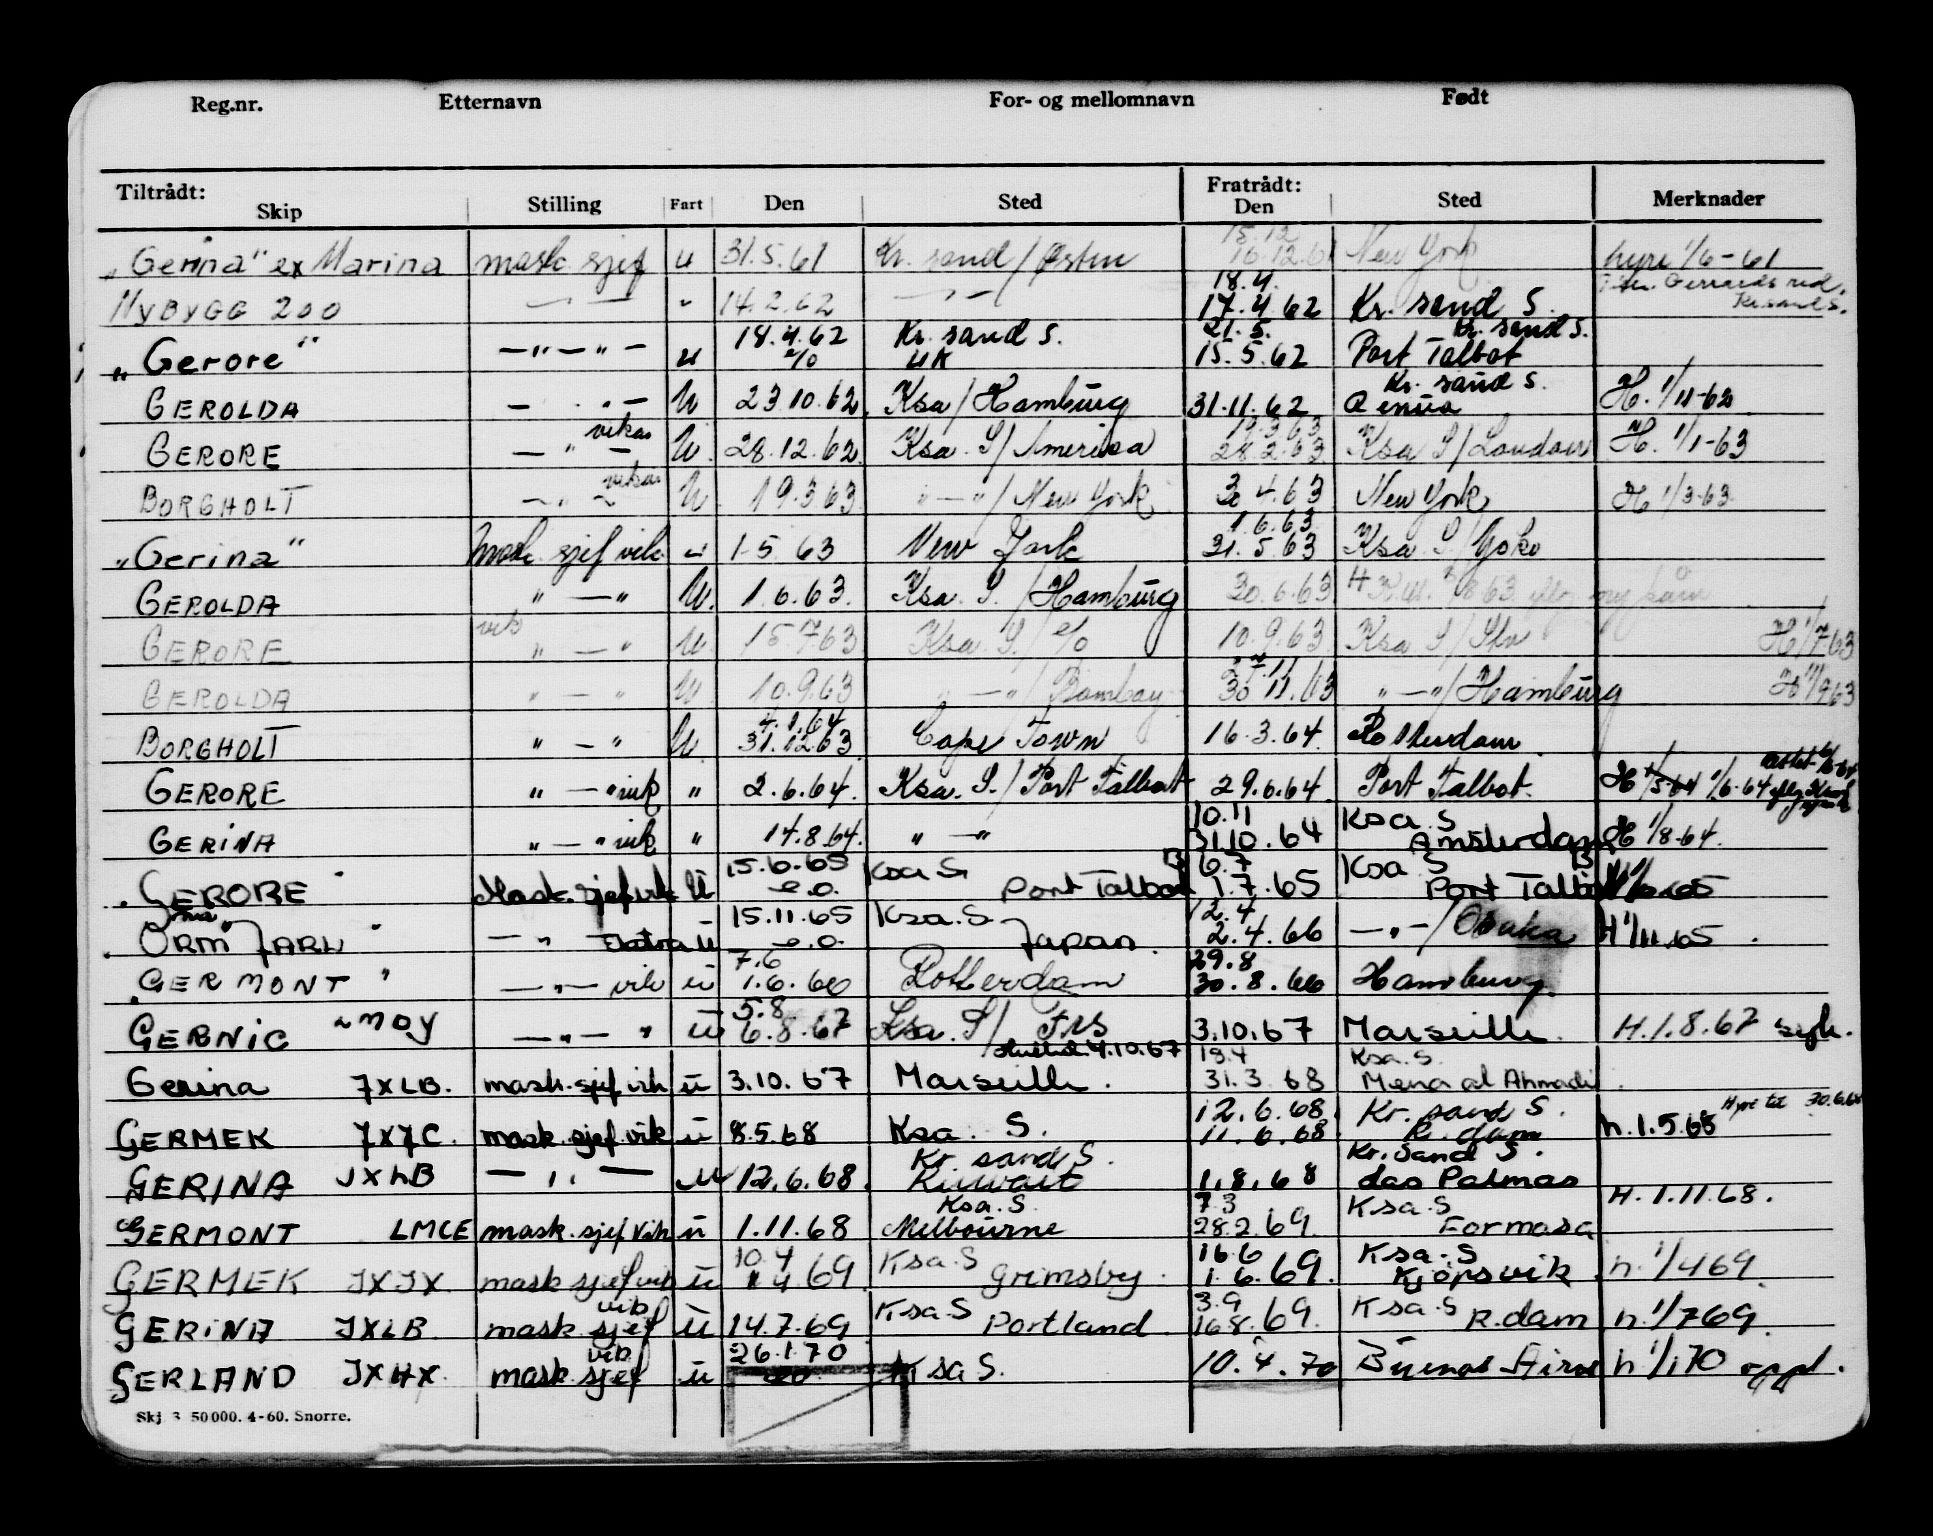 Reg.nr. Etternavn For- og mellomnavn Født
Tiltrådt: Fratrådt:
Skip Stilling Fart Den Sted Den Sted Merknader
15.12
„Gerina" ex Marina mask. sjef u 31.5.61 Kr. sand / Østen 16.12.61 New York hyre 1/6-61
18.4. Gerrards red.
NYBYGG 200 — " — " 14.2.62 — " — 17.4.62 Kr. sand S. Kr.sand S.
18.4.62 Kr. sand S. 21.5. Kr. sand S.
„Gerore" — " — " — u %0 UK 15.5.62 Port Talbot
Kr. sand S.
GEROLDA — " — U 23.10.62 Ksa / Hamburg 31.11.62 Genua H. 1/11-62
vikar 19.3.63
GERORE — " — U. 28.12.62 Ksa. S/ America 28.2.63 Ksa S/ London H. 1/1-63
vikar
BORGHOLT — " — U. 19.3.63 " — " / New York 30.4.63 New York H 1/3-63
1.6.63
„Gerina" Mask. sjef vik u 1.5.63 New York 31.5.63 Ksa. S./ Yoko
GEROLDA " — " U. 1.6.63. Ksa. S. / Hamburg 30.6.63
vik
GERORE " — " U 15.7.63 Ksa. S./ %0 10.9.63 Ksa S/ H 1/7-63
GEROLDA " — " U 10.9.63 " — " / Bombay 30.11.63 " — " / Hamburg H 1/9 63
4.1.64
BORGHOLT " — " U. 31.12.63 Cape Town 16.3.64. Rotterdam
GERORE " — " vik " 2.6.64. Ksa. S./ Port Talbot 29.6.64. Port Talbot. H 1/5-64 1/6-64
10.11 Ksa. S
GERINA " — " vik " 14.8.64. " — " 31.10.64 Amsterdam H 1/8-64.
15.6.65 Ksa S 6.7 Ksa S
„GERORE" Mask. sjef vik U e.o. Port Talbot 1.7.65 Port Talbot
15.11.65 Ksa. S 12.4
„ORM JARL" — " Extra U e.o. Japan. 2.4.66 — " — / Osaka H 1/11.65.
7.6 29.8
„GERMONT" — " — vik u 1.6.66 Rotterdam 30.8.66 Hamburg.
5.8
GERNIC LMOY — " — " u 6.8.67 Ksa. S/ 3.10.67 Marseille. H. 1.8.67 syk.
4.10.67 19.4 Ksa. S.
Gerina JXLB. mask. sjef vik u 3.10.67 Marseille. 31.3.68 Mena al Ahmadi.
12.6.68. Kr. sand S. Hyre til 30.6.68
GERMEK JXJC. mask. sjef vik u 8.5.68 Ksa. S. 11.6.68. R. dam h. 1.5.68
Kr. sand S. Kr. Sand S.
GERINA JXLB — " — u 12.6.68. Kuwait 1.8.68 Las Palmas
Ksa. S. 7.3 Ksa. S H. 1.11.68.
GERMONT LMCE mask. sjef vik u 1.11.68 Melbourne 28.2.69. Formosa
10.4 Ksa. S 16.6 Ksa. S
GERMEK JXJX. mask sjef vik u 1.4.69 Grimsby. 1.6.69. Kjøpsvik. h. 1/4 69.
vik Ksa S 3.9 Ksa. S
GERINA JXLB. mask. sjef u 14.7.69 Portland. 16.8.69. R. dam h. 1/7 69.
vik 26.1.70
GERLAND JXHX. mask. sjef u e.o. Ksa S. 10.4.70 Buenos Aires h 1/1 70 oppl.
Skj. 3 50 000. 4-60. Snorre.